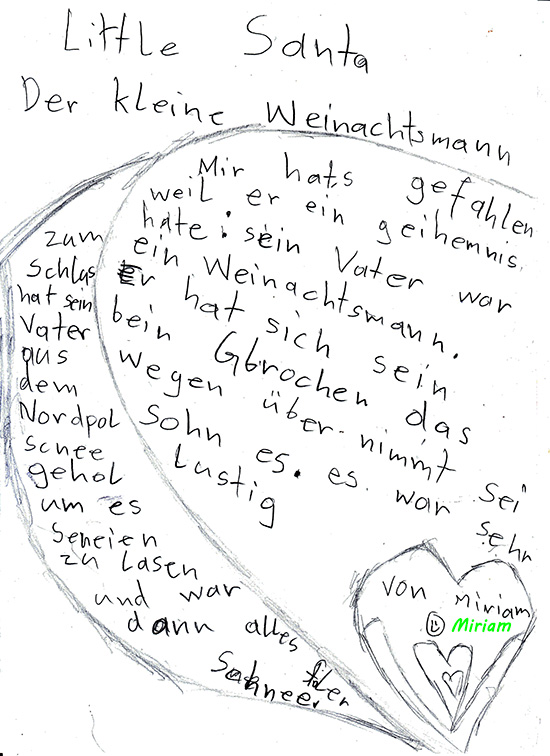 Little Santa
Der kleine Weinachtsmann
Mir hats gefahlen
weil er ein geihemnis
hate: sein Vater war
ein Weinachtsmann.
Er hat sich sein
bein Gbrochen das
wegen über nimmt sei
Sohn es. es war sehr
Lustig
zum
Schlus
hat sein
Vater
aus
dem
Nordpol
schee
gehol
um es
seneien
zu lasen
und war
dann alles
foler
Sahneer
von miriam
Miriam